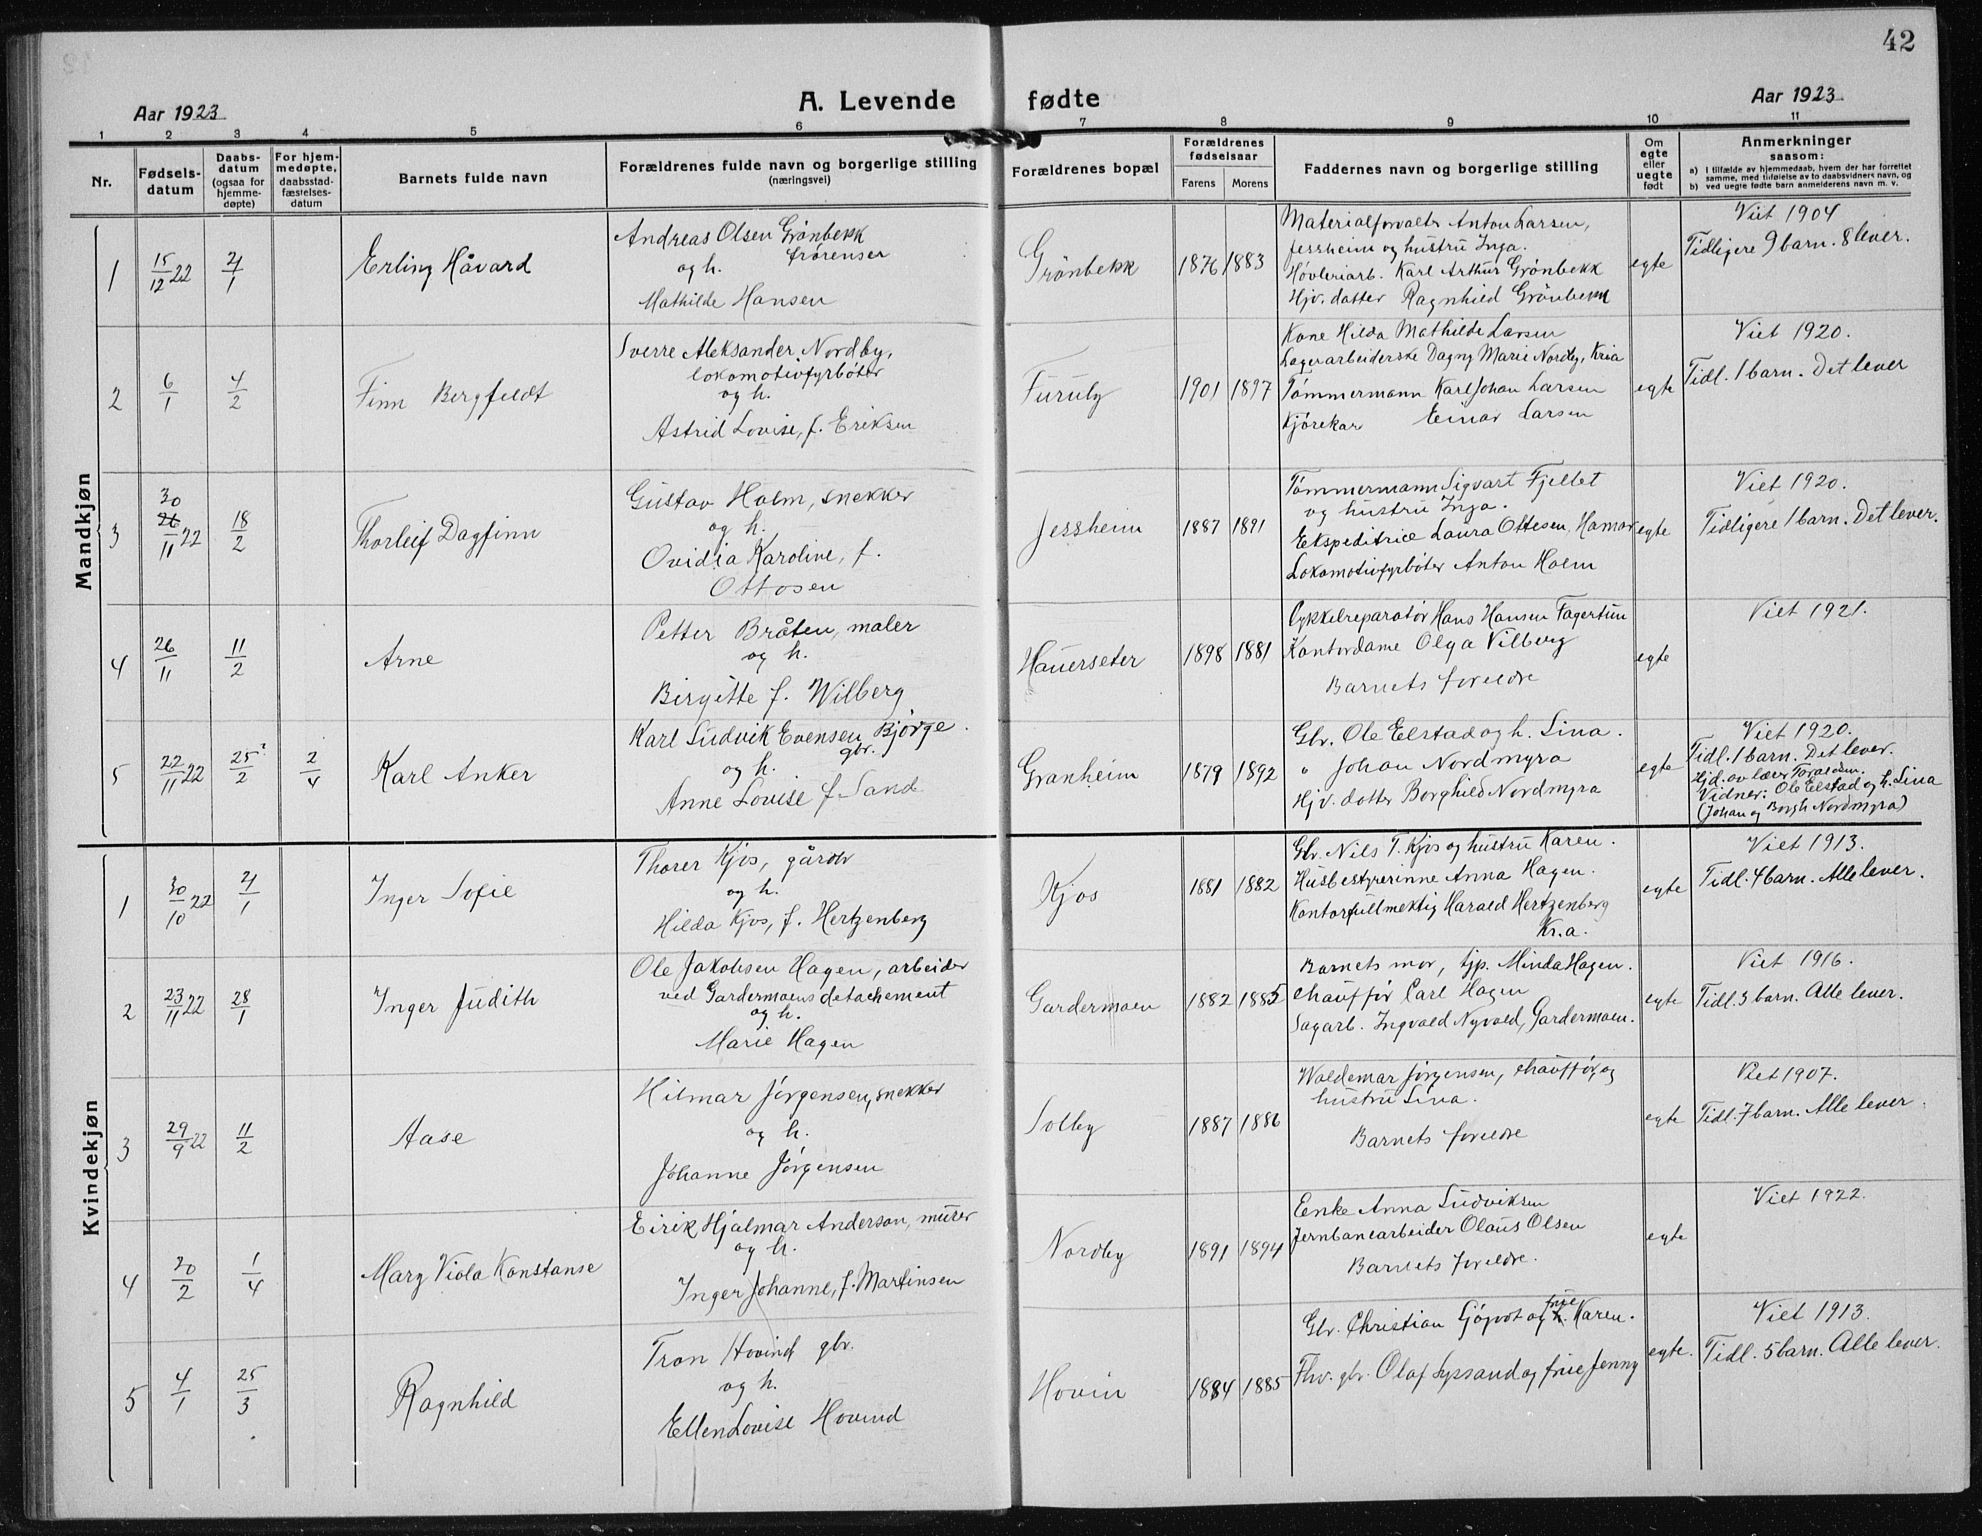 42
Aar 1923
A. Levende fødte
Aar 1923
1 2 3 4 5 6 7 8 9 10 11
Nr.
Fødsels-
datum
Daabs-
datum
(ogsaa for
hjemme-
døpte)
For hjem-
medøpte,
daabsstad-
fæstelses-
datum
Barnets fulde navn
Forældrenes fulde navn og borgerlige stilling
(næringsvei)
Forældrenes bopæl
Forældrenes
fødselsaar
Farens Morens
Faddernes navn og borgerlige stilling
Om
egte
eller
uegte
født
Anmerkninger
saasom:
a) I tilfælde av hjemmedaab, hvem der har forrettet
samme, med tilføielse av to daabsvidners navn, og
b) ved uegte fødte barn anmelderens navn m. v.
Mandkjøn
1
15/12 22
21/1
Erling Håvard
Andreas Olsen Grönbekk
og h.
Mathilde Hansen
Grönbekk
1876 1883
Materialforvalter Anton Larsen,
Jessheim og hustru Inga.
Høvleriarb. Karl Arthur Grönbekk
Hjv. datter Ragnhild Grönbekk
egte
Viet 1904
Tidligere 9 barn. 8 lever.
2
6/1
4/2
Finn Bergfeldt
Sverre Aleksander Nordby,
lokomotivfyrbøter
og h.
Astrid Lovise, f. Eriksen
Furuly
1901 1897
Kone Hilda Mathilde Larsen
Lagerarbeiderske Dagny Marie Nordby, Kria
Tømmermann Karl Johan Larsen
Kjørekar Einar Larsen
egte
Viet 1920.
Tidl. 1 barn. Det lever
3
30
26/11 22
18/2
Thorleif Dagfinn
Gustav Holm, snekker
og h.
Ovidia Karoline, f.
Ottosen
Jessheim
1887 1891
Tømmermann Sigvart Fjellet
og hustru Inga.
Ekspeditrice Laura Ottesen, Hamar
Lokomotivfyrbøter Anton Holm
egte
Viet 1920.
Tidligere 1 barn. Det lever.
4
26/11
11/2
Arne
Petter Bråten, maler
og h.
Birgitte f. Wilberg
Hauerseter
1898 1881
Cykkelreparatør Hans Hansen Fagertun
Kontordame Olga Vilberg
Barnets foreldre
egte
Viet 1921.
5
22/11 22
25/2
2/4
Karl Anker
Karl Ludvik Evensen Bjørge.
gbr.
og h.
Anne Lovise f. Sand
Granheim
1879 1892
Gbr. Ole Elstad og h. Lina.
" Johan Nordmyra
Hjv. datter Borghild Nordmyra
egte
Viet 1920.
Tidl. 1 barn. Det lever.
Vidner: Ole Elstad og h. Lina
(Johan og Borgh Nordmyra)
Kvindekjøn
1
30/10 22
21/1
Inger Sofie
Thorer Kjos, gårdbr
og h.
Hilda Kjos, f. Hertzenberg
Kjos
1881 1882
Gbr. Nils T. Kjos og hustru Karen.
Husbestyrerinne Anna Hagen.
Kontorfullmektig Harald Hertzenberg
Kr.a.
egte
Viet 1913.
Tidl. 4 barn. Alle lever.
2
23/11 22
28/1
Inger Judith
Ole Jakobsen Hagen, arbeider
ved Gardermoens detachement
og h.
Marie Hagen
Gardermoen
1882 1885
Barnets mor, tjp. Minda Hagen.
Chauffør Carl Hagen
Sagarb. Ingvald Nyvold, Gardermoen.
egte
Viet 1916.
Tidl. 3 barn. Alle lever.
3
29/9 22
11/2
Aase
Hilmar Jørgensen, snekker
og h.
Johanne Jørgensen
Solby
1887 1886
Waldemar Jørgensen, chauffør, og
hustru Lina.
Barnets foreldre
egte
Viet 1907.
Tidl. 7 barn. Alle lever.
4
20/2
1/4
Mary Viola Konstanse
Eirik Hjalmar Anderson, murer
og h.
Inger Johanne, f. Martinsen
Nordby
1891 1894
Enke Anna Ludviksen
Jernbanearbeider Olaus Olsen
Barnets foreldre.
egte
Viet 1922.
5
4/1
25/3
Ragnhild
Tron Hovind gbr.
og h.
Ellen Lovise Hovind
Hovin
1884 1885
Gbr. Christian og frue Karen.
Fhv. gbr. Olaf og frue Jenny
egte.
Viet 1913.
Tidl. 5 barn. Alle lever.